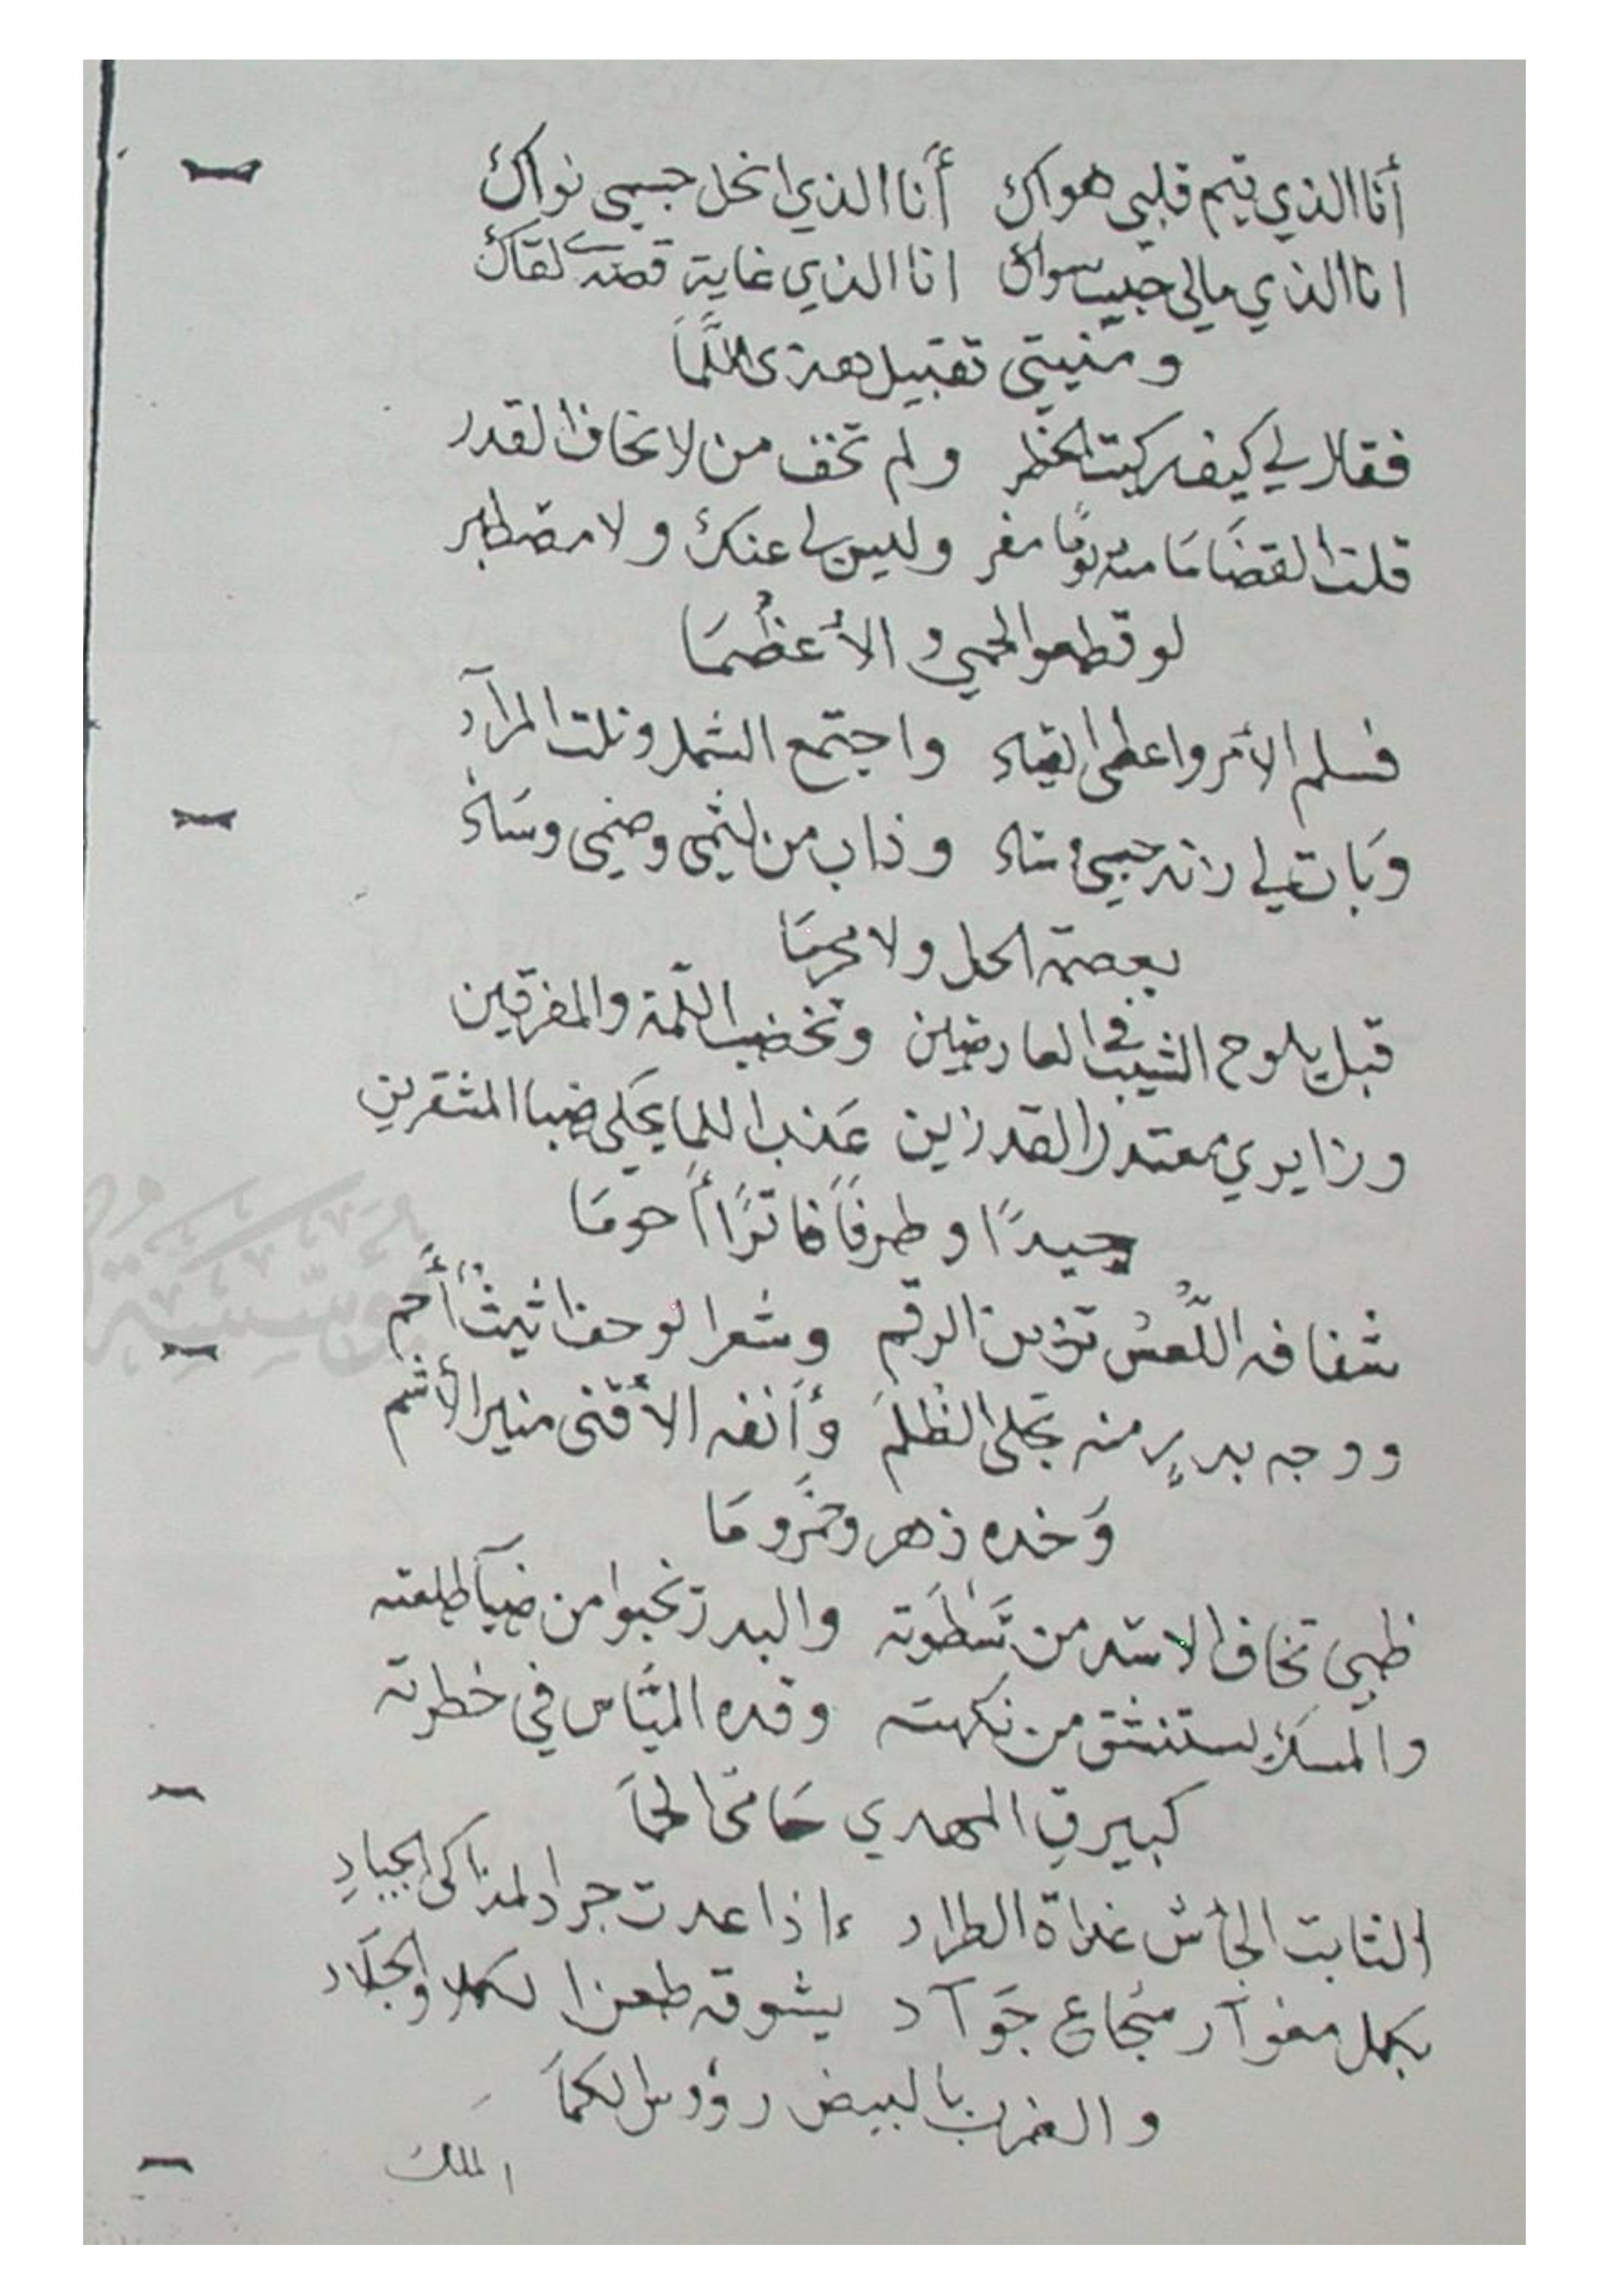 أنا الذي تيم قلبي هواك أنا الذي انحل جسمي نواك
انا الذي مالي حبيب سواك انا الذي غاية قصدي لقاك
ومنيتي تقبيل هذى اللَّمَا
فقال لي كيف ركبت الخطر ولم تخف من لا يخاف القدر
قلت القضَا مَا منه يومًا مفر وليس لي عنك ولا مصطبر
لو قطعوا لحمي و الأعظُمَا
فسلم الأمر واعطى القياد واجتمع الشمل ونلت المرآد
وَبات لي دانه حبيبي وساد وذاب من لثمى وضمي وسَاد
بعصمة الحل ولا محرمَا
قبل يلوح الشيب في العارضين وتخضب اللّمة والمفرقين
وزايري معتدل القد زين عَذب اللما يحكى ضبا المشقرين
جيدًا وطرفًا فاترًا أحومَا
شفافه اللُّعسُ تزين الرقم وشعرا لوحف اثيثٌ أحَم
ووجه بدرٍ منه تجلى الظُلمَ وأنفه الأقنى منير الأشم
وَخده زهر وخمر وما
ظبي تخاف الاسد من سَطوَته والبدر تخبوا من ضيآ طلعته
والمسك يستنشق من نكهته وقده الميَّاس في خطرته
كبيرق المهدي حَامى الحمَا
الثابت الجأش غداة الطراد إذا عدت جرد المذاكى الجيادِ
بكل مغوآر شجاع جَوآد يشوقه طعن الكلا والجلَاد
والضرب بالبيض رؤوس الكمَا
الملك
مؤسّسة